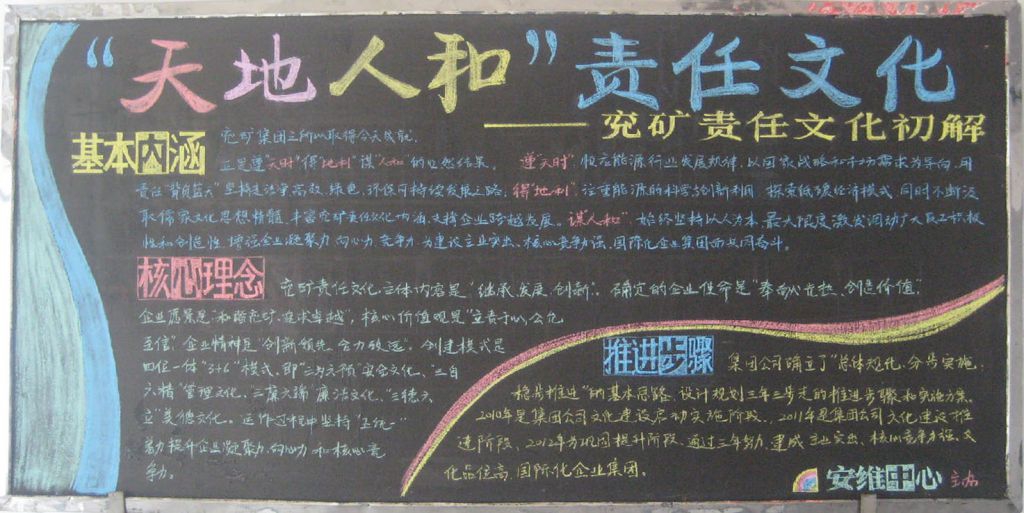 “天地人和”责任文化
——兖矿责任文化初解
基本内涵
兖矿集团之所以取得今天成就,
正是遵“天时”得“地利”谋“人和”的必然结果。“遵天时”,顺应能源行业发展规律,以国家战略和市场需求为导向,用
责任“背负蓝天”坚持走洁净高效、绿色、环保可持续发展之路;“得地利”,注重能源的科学与创新利用,探索低碳经济模式,同时不断汲
取儒家文化思想精髓,丰富兖矿责任文化内涵,支撑企业跨越发展。“谋人和”,始终坚持以人为本,最大限度激发调动广大员工积极
性和创造性,增强企业凝聚力、向心力、竞争力,为建设主业突出、核心竞争力强、国际化企业集团而共同奋斗。
核心理念
兖矿责任文化主体内容是“继承、发展、创新”。确定的企业使命是“奉献光热、创造价值”
企业愿景是“和谐兖矿、追求卓越”,核心价值观是“主责于心、公化
企业精神是“创新领先、合力致远”。创建模式是
四位一体“3+6”模式,即“三为六预”安全文化、“三自
六精”管理文化、“三廉六端”廉洁文化、“三德六
立”美德文化。运作过程中坚持“五统一”
着力提升企业凝聚力、向心力和核心竞
争力。
推进步骤
集团公司确立了“总体规化、分步实施、
稳步推进”的基本思路,设计规划三年三步走的推进步骤和实施方案。
2010年是集团公司文化建设启动实施阶段、2011年是集团公司文化建设推
进阶段、2012年为巩固提升阶段,通过三年努力,建成主业突出、核心竞争力强、文
化品位高、国际化企业集团。
安维中心 主办